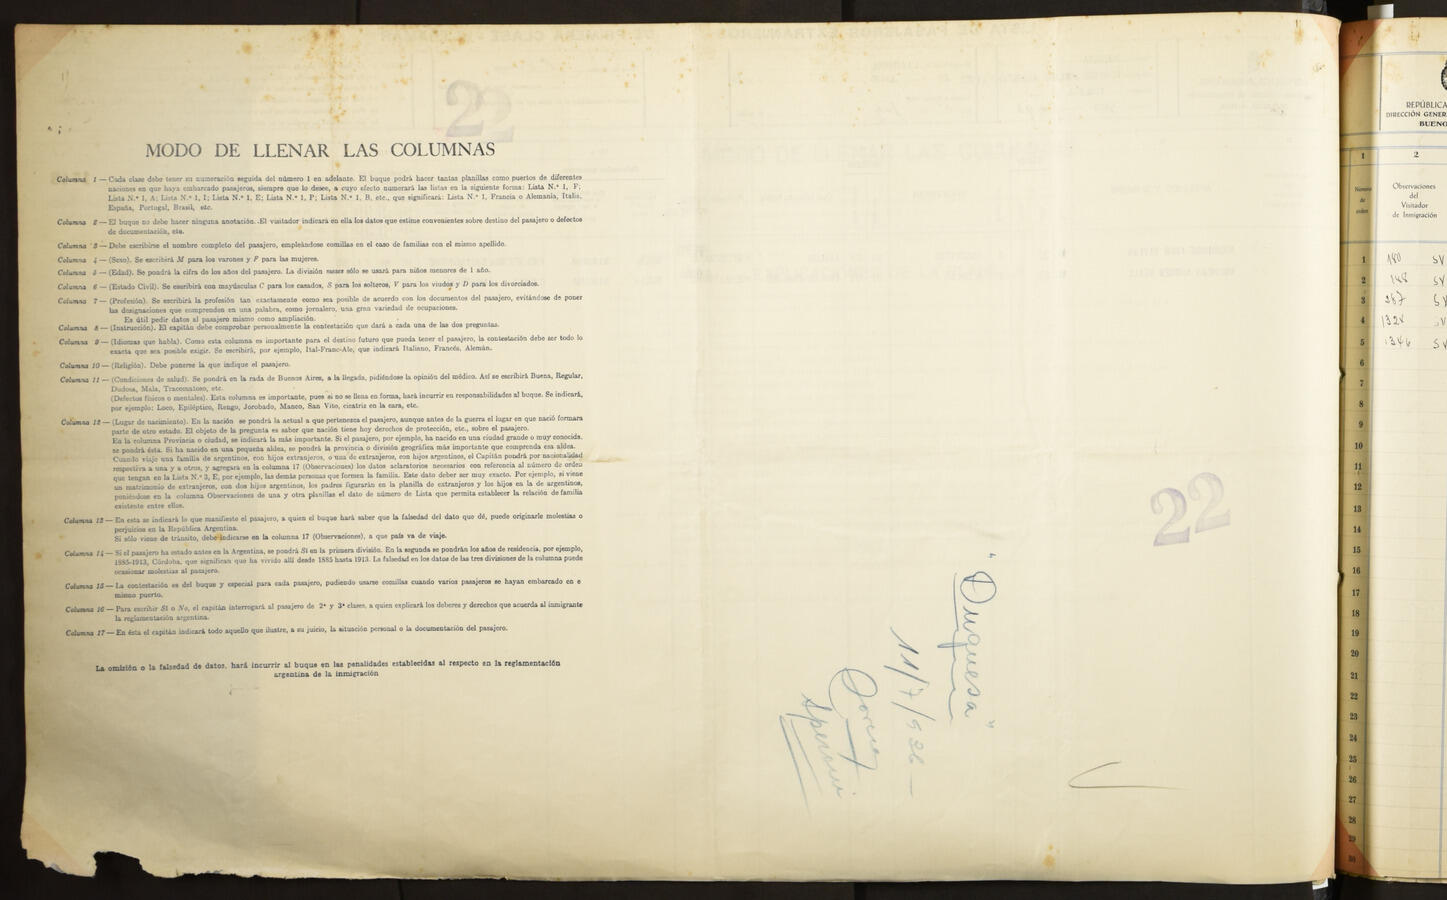 22
MODO DE LLENAR LAS COLUMNAS
Columna 1 — Cada clase debe tener su numeración seguida del número 1 en adelante. El buque podrá hacer tantas planillas como puertos de diferentes
naciones en que haya embarcado pasajeros, siempre que lo desee, a cuyo efecto numerará las listas en la siguiente forma: Lista N.º 1, F;
Lista N.º 1, A; Lista N.º 1, I; Lista N.º 1, E; Lista N.º 1, P; Lista N.º 1, B, etc., que significará: Lista N.º 1, Francia o Alemania, Italia,
España, Portugal, Brasil, etc.
Columna 2 — El buque no debe hacer ninguna anotación. El visitador indicará en ella los datos que estime convenientes sobre destino del pasajero o defectos
de documentación, etc.
Columna 3 — Debe escribirse el nombre completo del pasajero, empleándose comillas en el caso de familias con el mismo apellido.
Columna 4 — (Sexo). Se escribirá M para los varones y F para las mujeres.
Columna 5 — (Edad). Se pondrá la cifra de los años del pasajero. La división meses sólo se usará para niños menores de 1 año.
Columna 6 — (Estado Civil). Se escribirá con mayúsculas C para los casados, S para los solteros, V para los viudos y D para los divorciados.
Columna 7 — (Profesión). Se escribirá la profesión tan exactamente como sea posible de acuerdo con los documentos del pasajero, evitándose de poner
las designaciones que comprenden en una palabra, como jornalero, una gran variedad de ocupaciones.
Es útil pedir datos al pasajero mismo como ampliación.
Columna 8 — (Instrucción). El capitán debe comprobar personalmente la contestación que dará a cada una de las dos preguntas.
Columna 9 — (Idiomas que habla). Como esta columna es importante para el destino futuro que pueda tener el pasajero, la contestación debe ser todo lo
exacta que sea posible exigir. Se escribirá, por ejemplo, Ital-Franc-Ale, que indicará Italiano, Francés, Alemán.
Columna 10 — (Religión). Debe ponerse la que indique el pasajero.
Columna 11 — (Condiciones de salud). Se pondrá en la rada de Buenos Aires, a la llegada, pidiéndose la opinión del médico. Así se escribirá Buena, Regular,
Dudosa, Mala, Tracomatoso, etc.
(Defectos físicos o mentales). Esta columna es importante, pues si no se llena en forma, hará incurrir en responsabilidades al buque. Se indicará,
por ejemplo: Loco, Epiléptico, Rengo, Jorobado, Manco, San Vito, cicatriz en la cara, etc.
Columna 12 — (Lugar de nacimiento). En la nación se pondrá la actual a que pertenezca el pasajero, aunque antes de la guerra el lugar en que nació formara
parte de otro estado. El objeto de la pregunta es saber que nación tiene hoy derechos de protección, etc., sobre el pasajero.
En la columna Provincia o ciudad, se indicará la más importante. Si el pasajero, por ejemplo, ha nacido en una ciudad grande o muy conocida,
se pondrá ésta. Si ha nacido en una pequeña aldea, se pondrá la provincia o división geográfica más importante que comprenda esa aldea.
Cuando viaje una familia de argentinos, con hijos extranjeros, o una de extranjeros, con hijos argentinos, el Capitán pondrá por nacionalidad
respectiva a una y a otros, y agregará en la columna 17 (Observaciones) los datos aclaratorios necesarios con referencia al número de orden
que tengan en la Lista N.º 3, E, por ejemplo, las demás personas que formen la familia. Este dato deber ser muy exacto. Por ejemplo, si viene
un matrimonio de extranjeros, con dos hijos argentinos, los padres figurarán en la planilla de extranjeros y los hijos en la de argentinos,
poniéndose en la columna Observaciones de una y otra planillas el dato de número de Lista que permita establecer la relación de familia
existente entre ellos.
Columna 13 — En esta se indicará lo que manifieste el pasajero, a quien el buque hará saber que la falsedad del dato que dé, puede originarle molestias o
perjuicios en la República Argentina.
Si sólo viene de tránsito, debe indicarse en la columna 17 (Observaciones), a que país va de viaje.
Columna 14 — Si el pasajero ha estado antes en la Argentina, se pondrá Si en la primera división. En la segunda se pondrán los años de residencia, por ejemplo,
1885-1913, Córdoba, que significa que ha vivido allí desde 1885 hasta 1913. La falsedad en los datos de las tres divisiones de la columna puede
ocasionar molestias al pasajero.
Columna 15 — La contestación es del buque y especial para cada pasajero, pudiendo usarse comillas cuando varios pasajeros se hayan embarcado en e
mismo puerto.
Columna 16 — Para escribir Si o No, el capitán interrogará al pasajero de 2ª y 3ª clases, a quien explicará los deberes y derechos que acuerda al inmigrante
la reglamentación argentina.
Columna 17 — En ésta el capitán indicará todo aquello que ilustre, a su juicio, la situación personal o la documentación del pasajero.
La omisión o la falsedad de datos, hará incurrir al buque en las penalidades establecidas al respecto en la reglamentación
argentina de la inmigración
22
"Duquesa"
11/7/926
REPÚBLICA
DIRECCIÓN GENER
BUENO
1 2
Número de orden
Observaciones
del
Visitador
de Inmigración
1 180 SV
2 148 SV
3 387 SV
4 1324
5 1346 SV
6
7
8
9
10
11
12
13
14
15
16
17
18
19
20
21
22
23
24
25
26
27
28
29
30